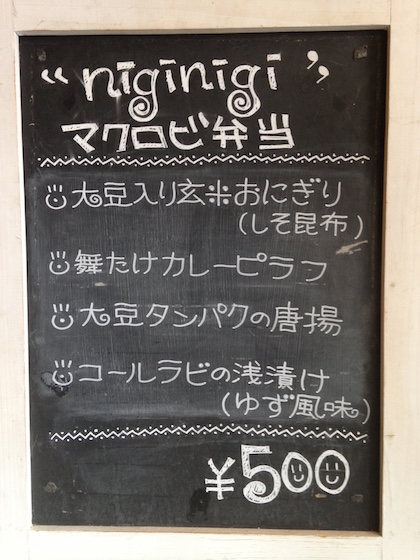 “niginigi”
マクロビ弁当
大豆入り玄米おにぎり
(しそ昆布)
舞たけカレーピラフ
大豆タンパクの唐揚
コールラビの浅漬け
(ゆず風味)
¥500